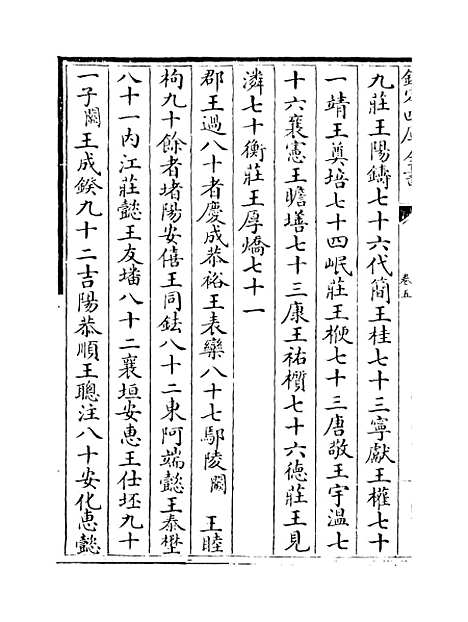 欽定四庫全書
卷五
九莊王陽鑄七十六代簡王桂七十三寧獻王權七十
一靖王奠培七十四岷莊王楩七十三唐敬王宇溫七
十六襄憲王瞻墡七十三康王祐櫍七十六德莊王見
潾七十衡莊王厚燆七十一
郡王過八十者慶成恭裕王表欒八十七鄢陵闕王睦
枸九十餘者堵陽安僖王同鉣八十二東阿端懿王泰塣
八十一內江莊懿王友墦八十二襄垣安惠王仕坯九十
一子闕王成鍨九十二吉陽恭順王聰注八十安化惠懿